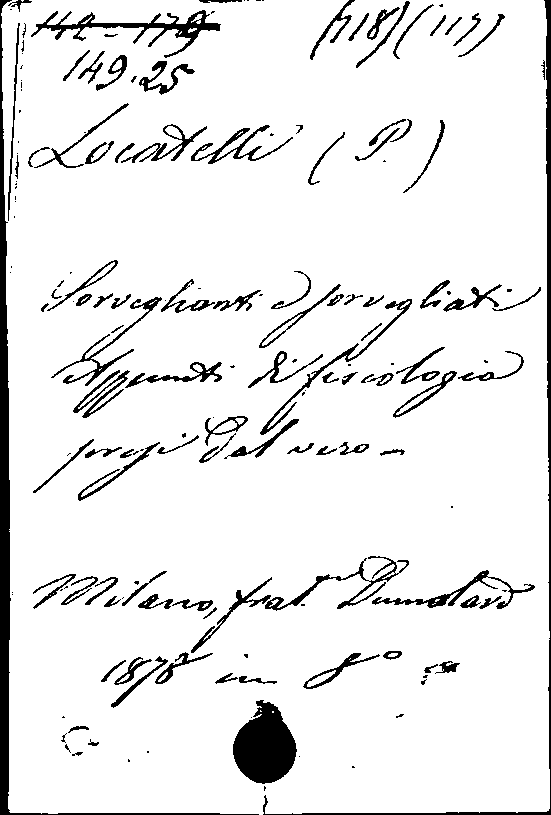 142-179 (718) (117)
149.25
Locatelli (P.)
Sorveglianti e sorvegliati
Appunti di fisiologia
presi dal vero -
Milano, frat. Dumolard
1878 in 8°